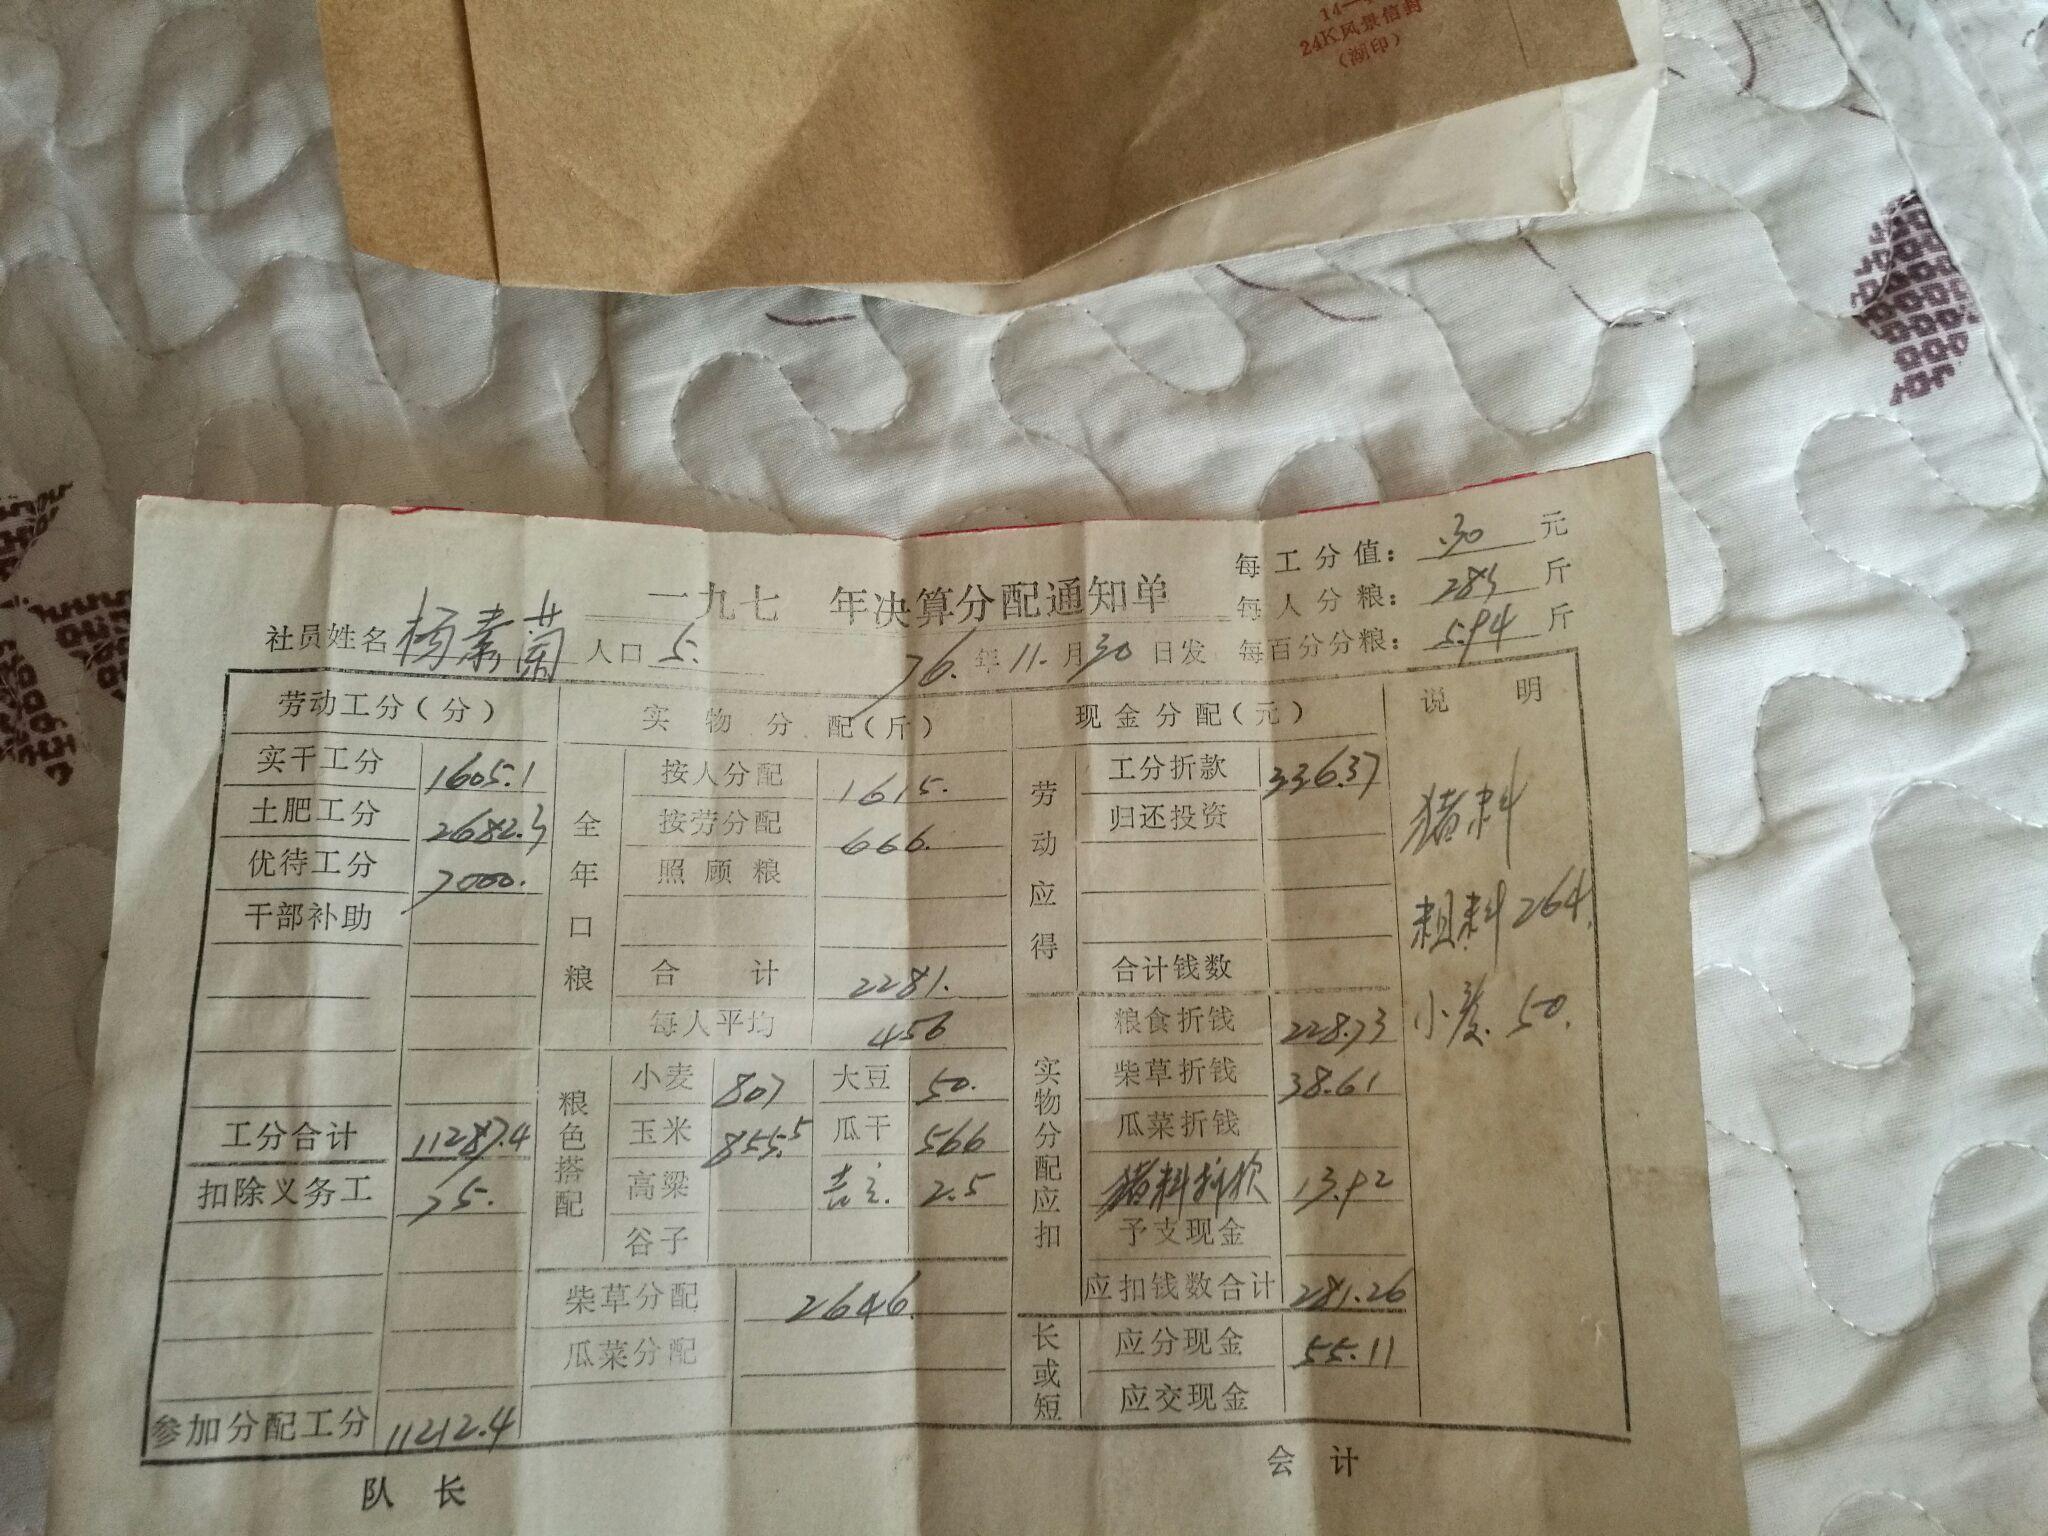 24K风景信封
(湖印)
一九七 年决算分配通知单
每工分值: .30 元
每人分粮: 283 斤
每百分分粮: 5.94 斤
社员姓名 杨素菊 人口 5. 76. 年 11. 月 30 日发
劳动工分(分) 实物分配(斤) 现金分配(元) 说明
实干工分 1605.1
土肥工分 2682.3
优待工分 7000.
干部补助
工分合计 11287.4
扣除义务工 75.
参加分配工分 11212.4
全年口粮
按人分配 1615.
按劳分配 666.
照顾粮
合计 2281.
每人平均 456
粮色搭配
小麦 807 大豆 50.
玉米 855.5 瓜干 566
高粱 2.5
谷子
柴草分配 2646.
瓜菜分配
劳动应得
工分折款 336.37
归还投资
合计钱数
实物分配应扣
粮食折钱 228.73
柴草折钱 38.61
瓜菜折钱
猪料折款 13.92
予支现金
应扣钱数合计 281.26
长或短
应分现金 55.11
应交现金
猪料
粗料 264.
小麦. 50.
队长 会计